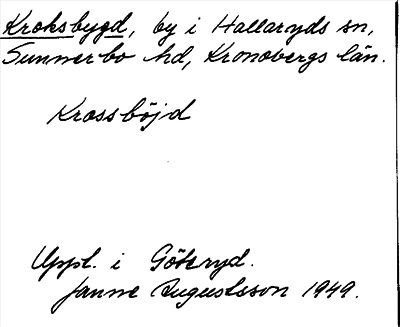 Kroksbygd, by i Hallaryds sn,
Sunnerbo hd, Kronobergs län.
Krossböjd
Uppt. i Göteryd.
Janne Augustsson 1949.